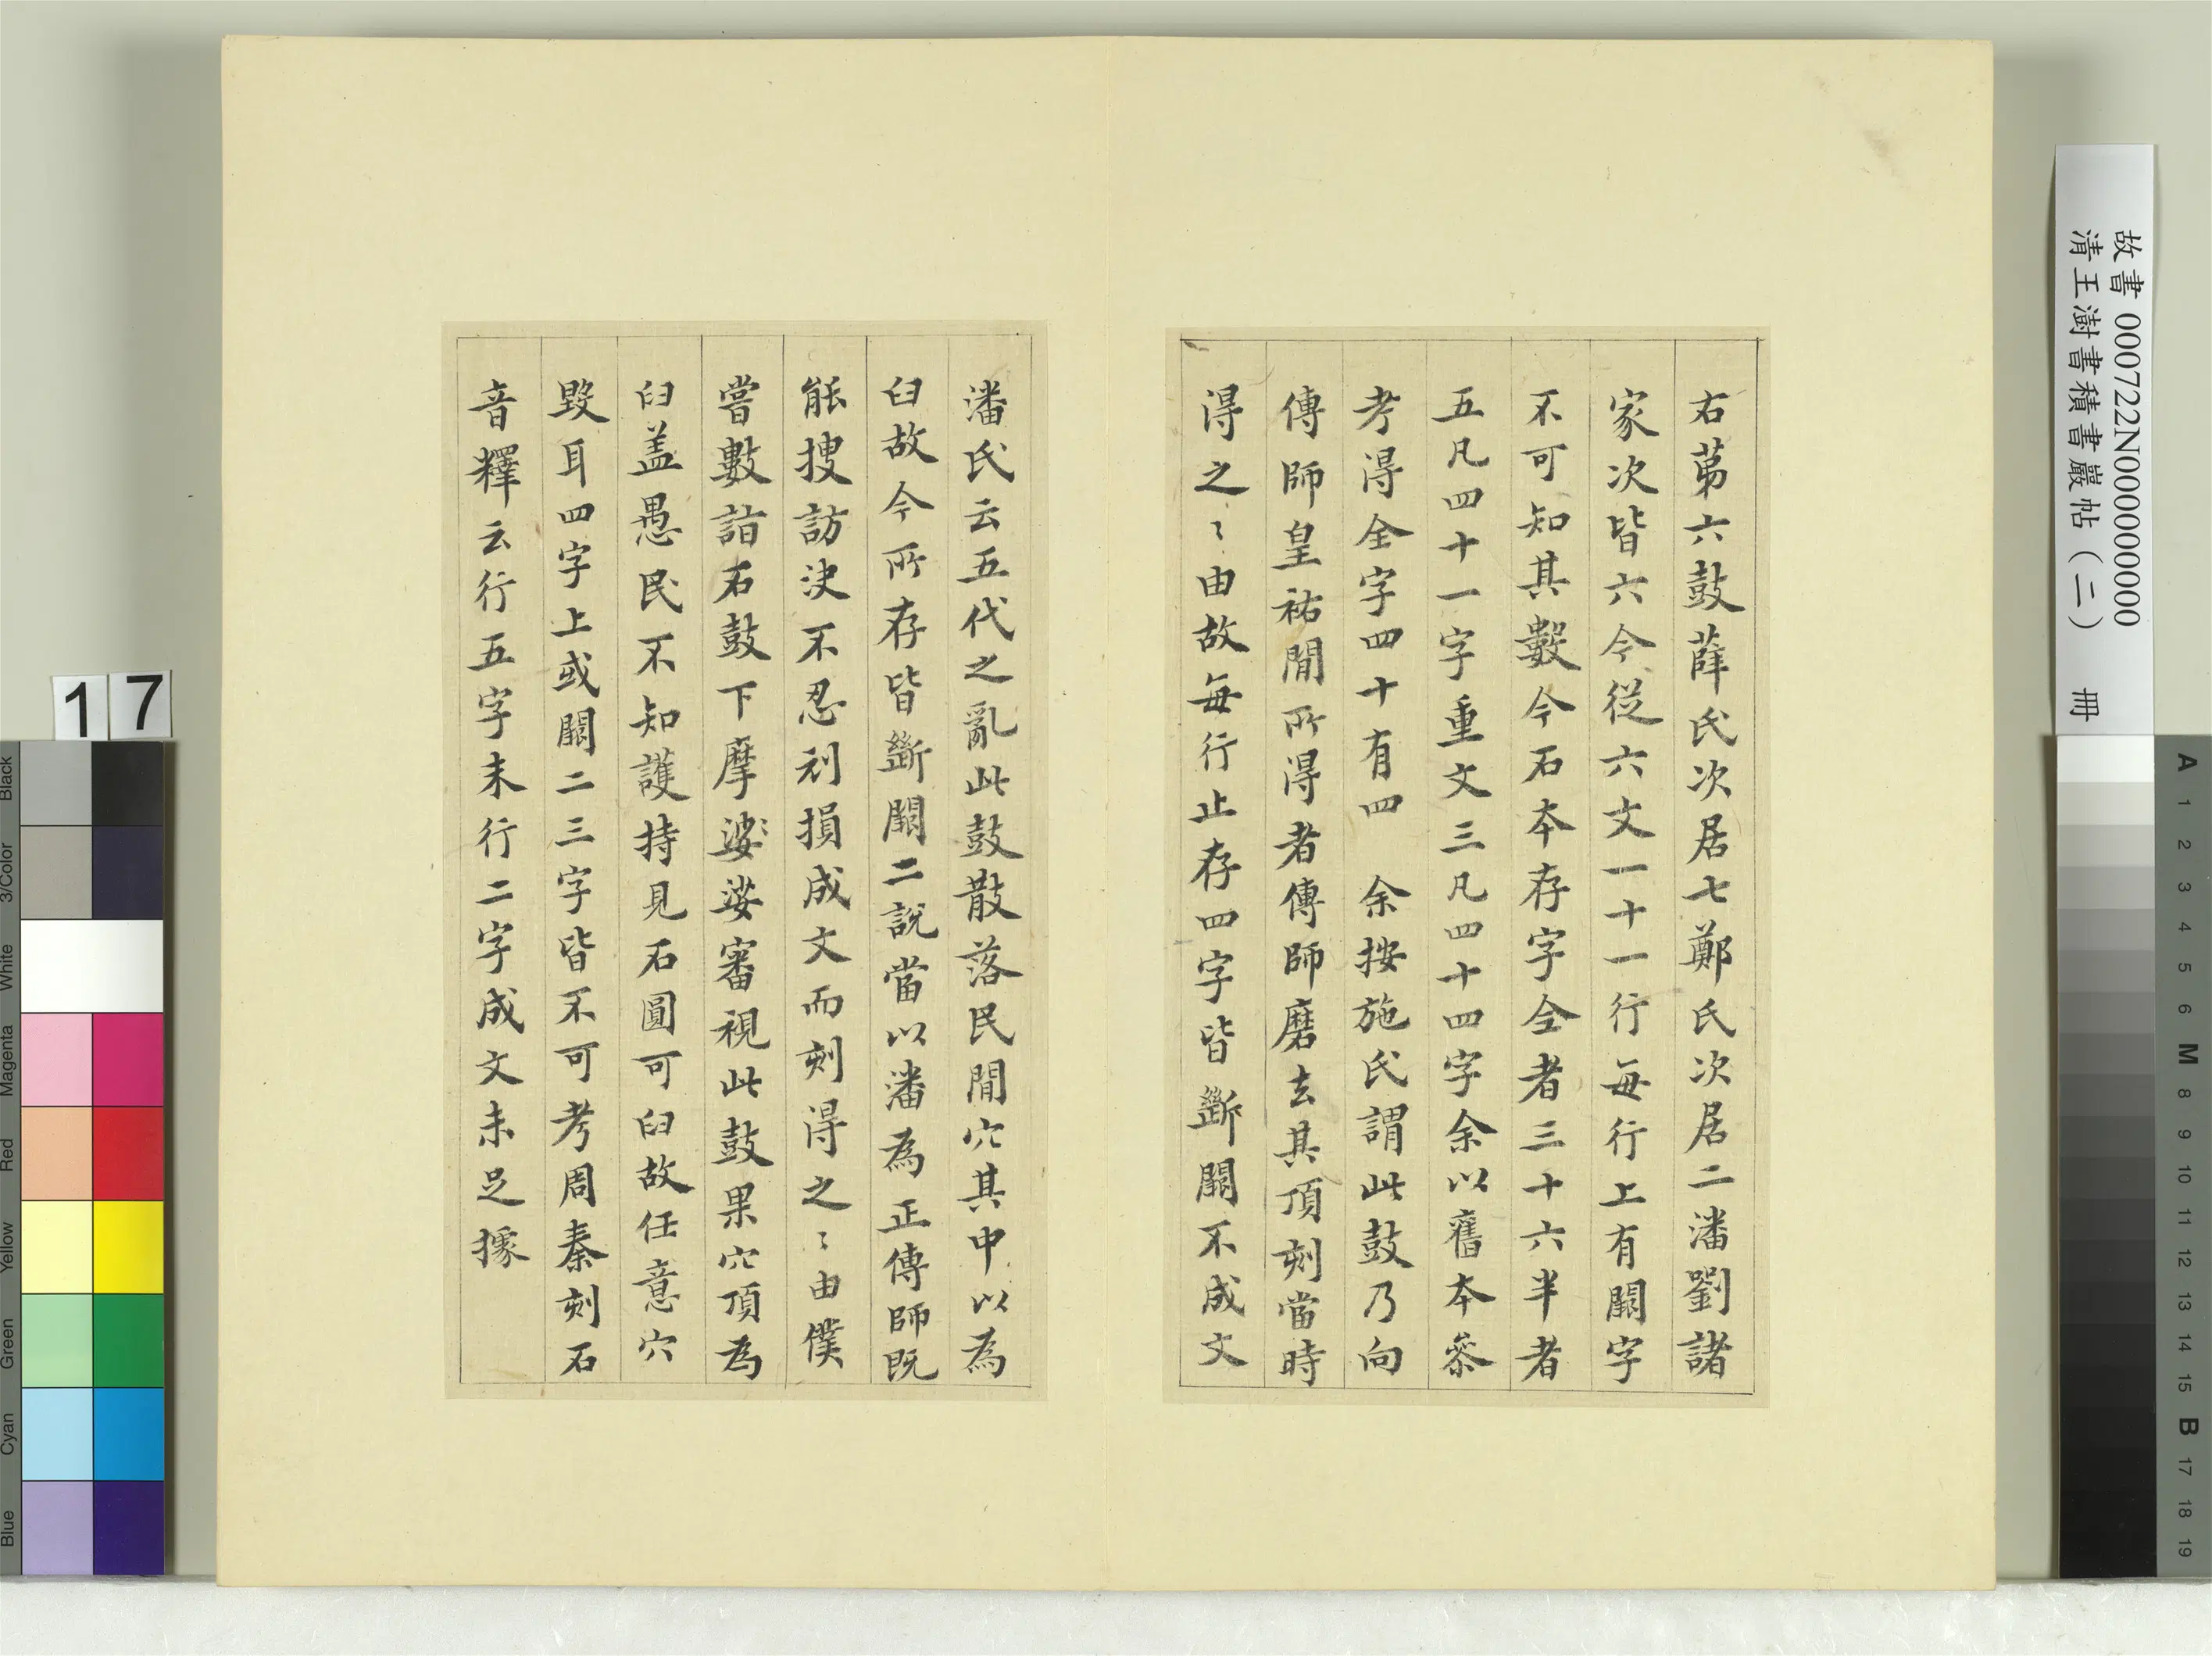 右苐六鼓薛氏次居七鄭氏次居二潘劉諸
家次皆六今從六文一十一行每行上有闕字
不可知其數今石本存字全者三十六半者
五凡四十一字重文三凡四十四字余以舊本叅
考得全字四十有四　余按施氏謂此鼓乃向
傳師皇祐閒所得者傳師磨去其頂刻當時
得之〻由故每行止存四字皆斷闕不成文
潘氏云五代之亂此鼓散落民閒穴其中以為
臼故今所存皆斷闕二說當以潘為正傳師既
能搜訪決不忍刓損成文而刻得之〻由僕
嘗數詣石鼓下摩娑〻娑審視此鼓果穴頂為
臼盖愚民不知護持見石圓可臼故任意穴
毀耳四字上或闕二三字皆不可考周秦刻石
音釋云行五字末行二字成文未足據
故書 000722N000000000
清王澍書積書巖帖（二）　冊
17
Black
3/Color
White
Magenta
Red
Yellow
Green
Cyan
Blue
A
1
2
3
4
5
6
M
8
9
10
11
12
13
14
15
B
17
18
19